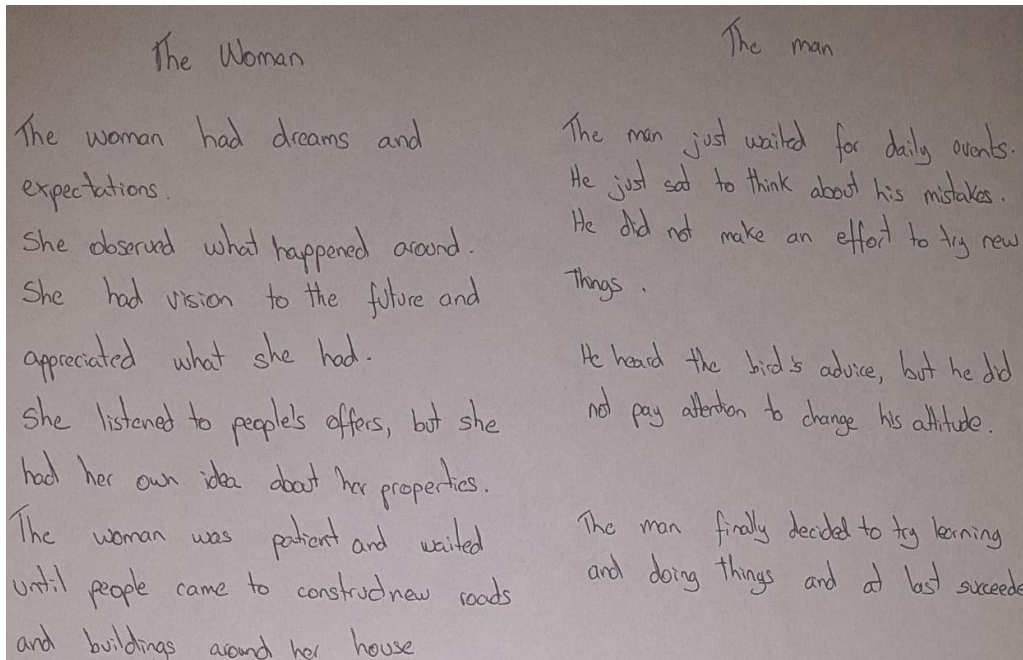 The Woman
The woman had dreams and
expectations.
She observed what happened around.
She had vision to the future and
appreciated what she had.
She listened to people's offers, but she
had her own idea about her properties.
The woman was patient and waited
until people came to construct new roads
and buildings around her house
The man
The man just waited for daily events.
He just sat to think about his mistakes.
He did not make an effort to try new
things.
He heard the bird's advice, but he did
not pay attention to change his attitude.
The man finally decided to try learning
and doing things and at last succeede